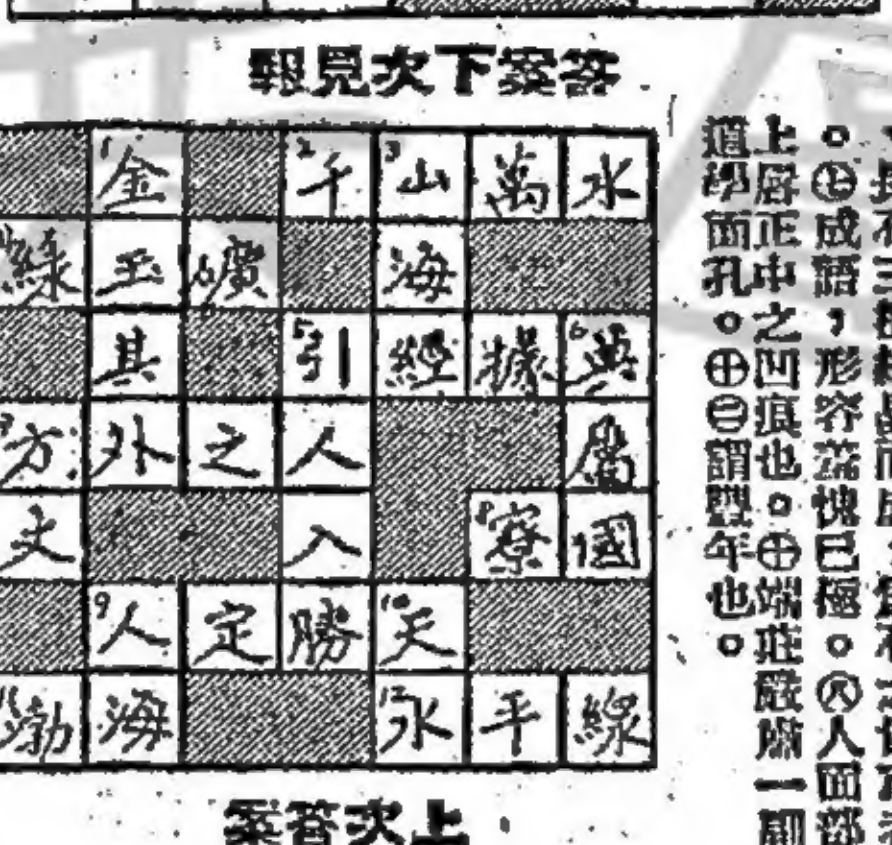 報見次下案答
1金 2千 3山 萬 水
綠 玉 礦 海
其 5引 經 據 6典
方 外 之 人 屬
丈 入 8寮 國
9人 定 勝 10天
11渤 海 12水 平 線
案答次上
。㊤成語，形容羞愧已極。㊇人面部
上唇正中之凹痕也。㊉端莊嚴肅一副
道學面孔。㊉㊁謂豐年也。